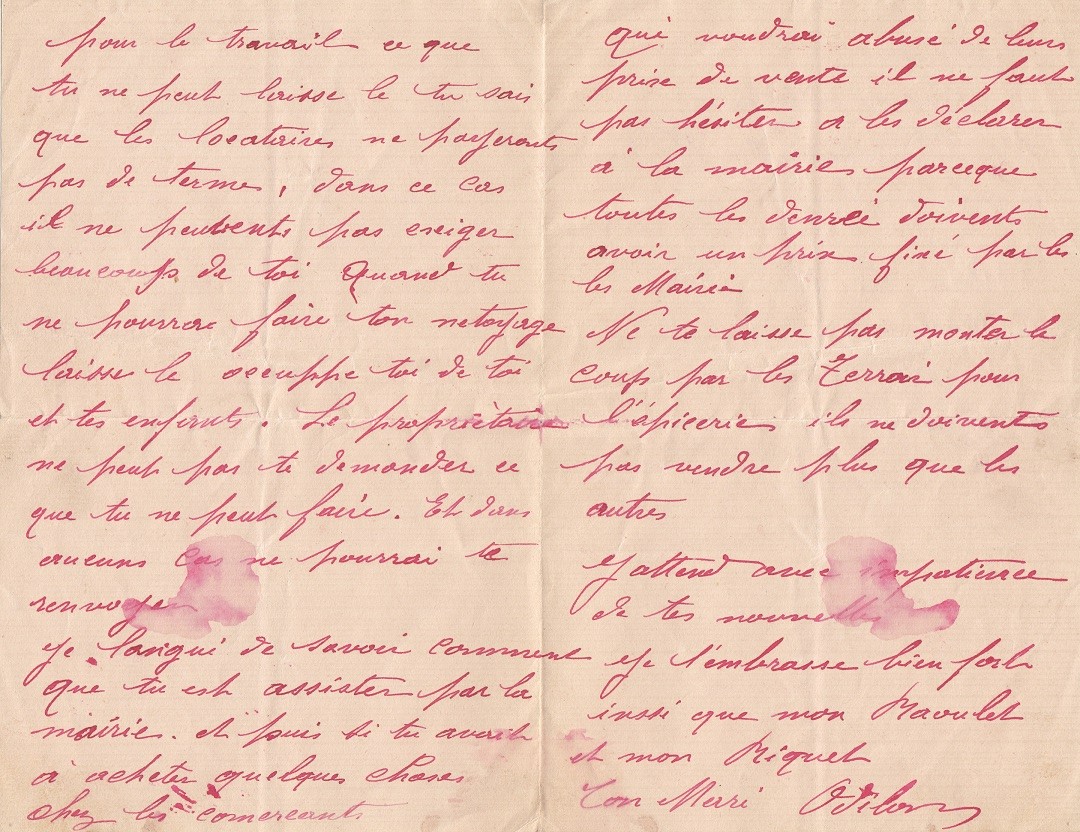 pour le travail ce que
tu ne peut laisse le tu sais
que les locataires ne payeronts
pas de terme, dans ce cas
il ne peuvents pas exiger
beaucoups de toi Quand tu
ne pourrae faire ton netoyage
laisse le occuppe toi de toi
et tes enfants. Le propriètaire
ne peut pas te demander ce
que tu ne peut faire. Et dans
aucuns cas ne pourrai te
renvoyer
Je langui de savoir comment
que tu est assister par la
mairie. et puis si tu avait
à acheter quelques choses
chez les comercants
qui voudrai abusé de leurs
prix de vente il ne faut
pas hésiter a les déclarer
à la mairie parceque
toutes les denrée doivents
avoir un prix fixé par les
les Mairie
Ne te laisse pas monter le
coups par les Terrai pour
l'épicerie ils ne doivents
pas vendre plus que les
autres
J'attend avec impatience
de tes nouvelles
Je t'embrasse bien fort
inssi que mon Raoulet
et mon Riquet
Ton Mari Odilon